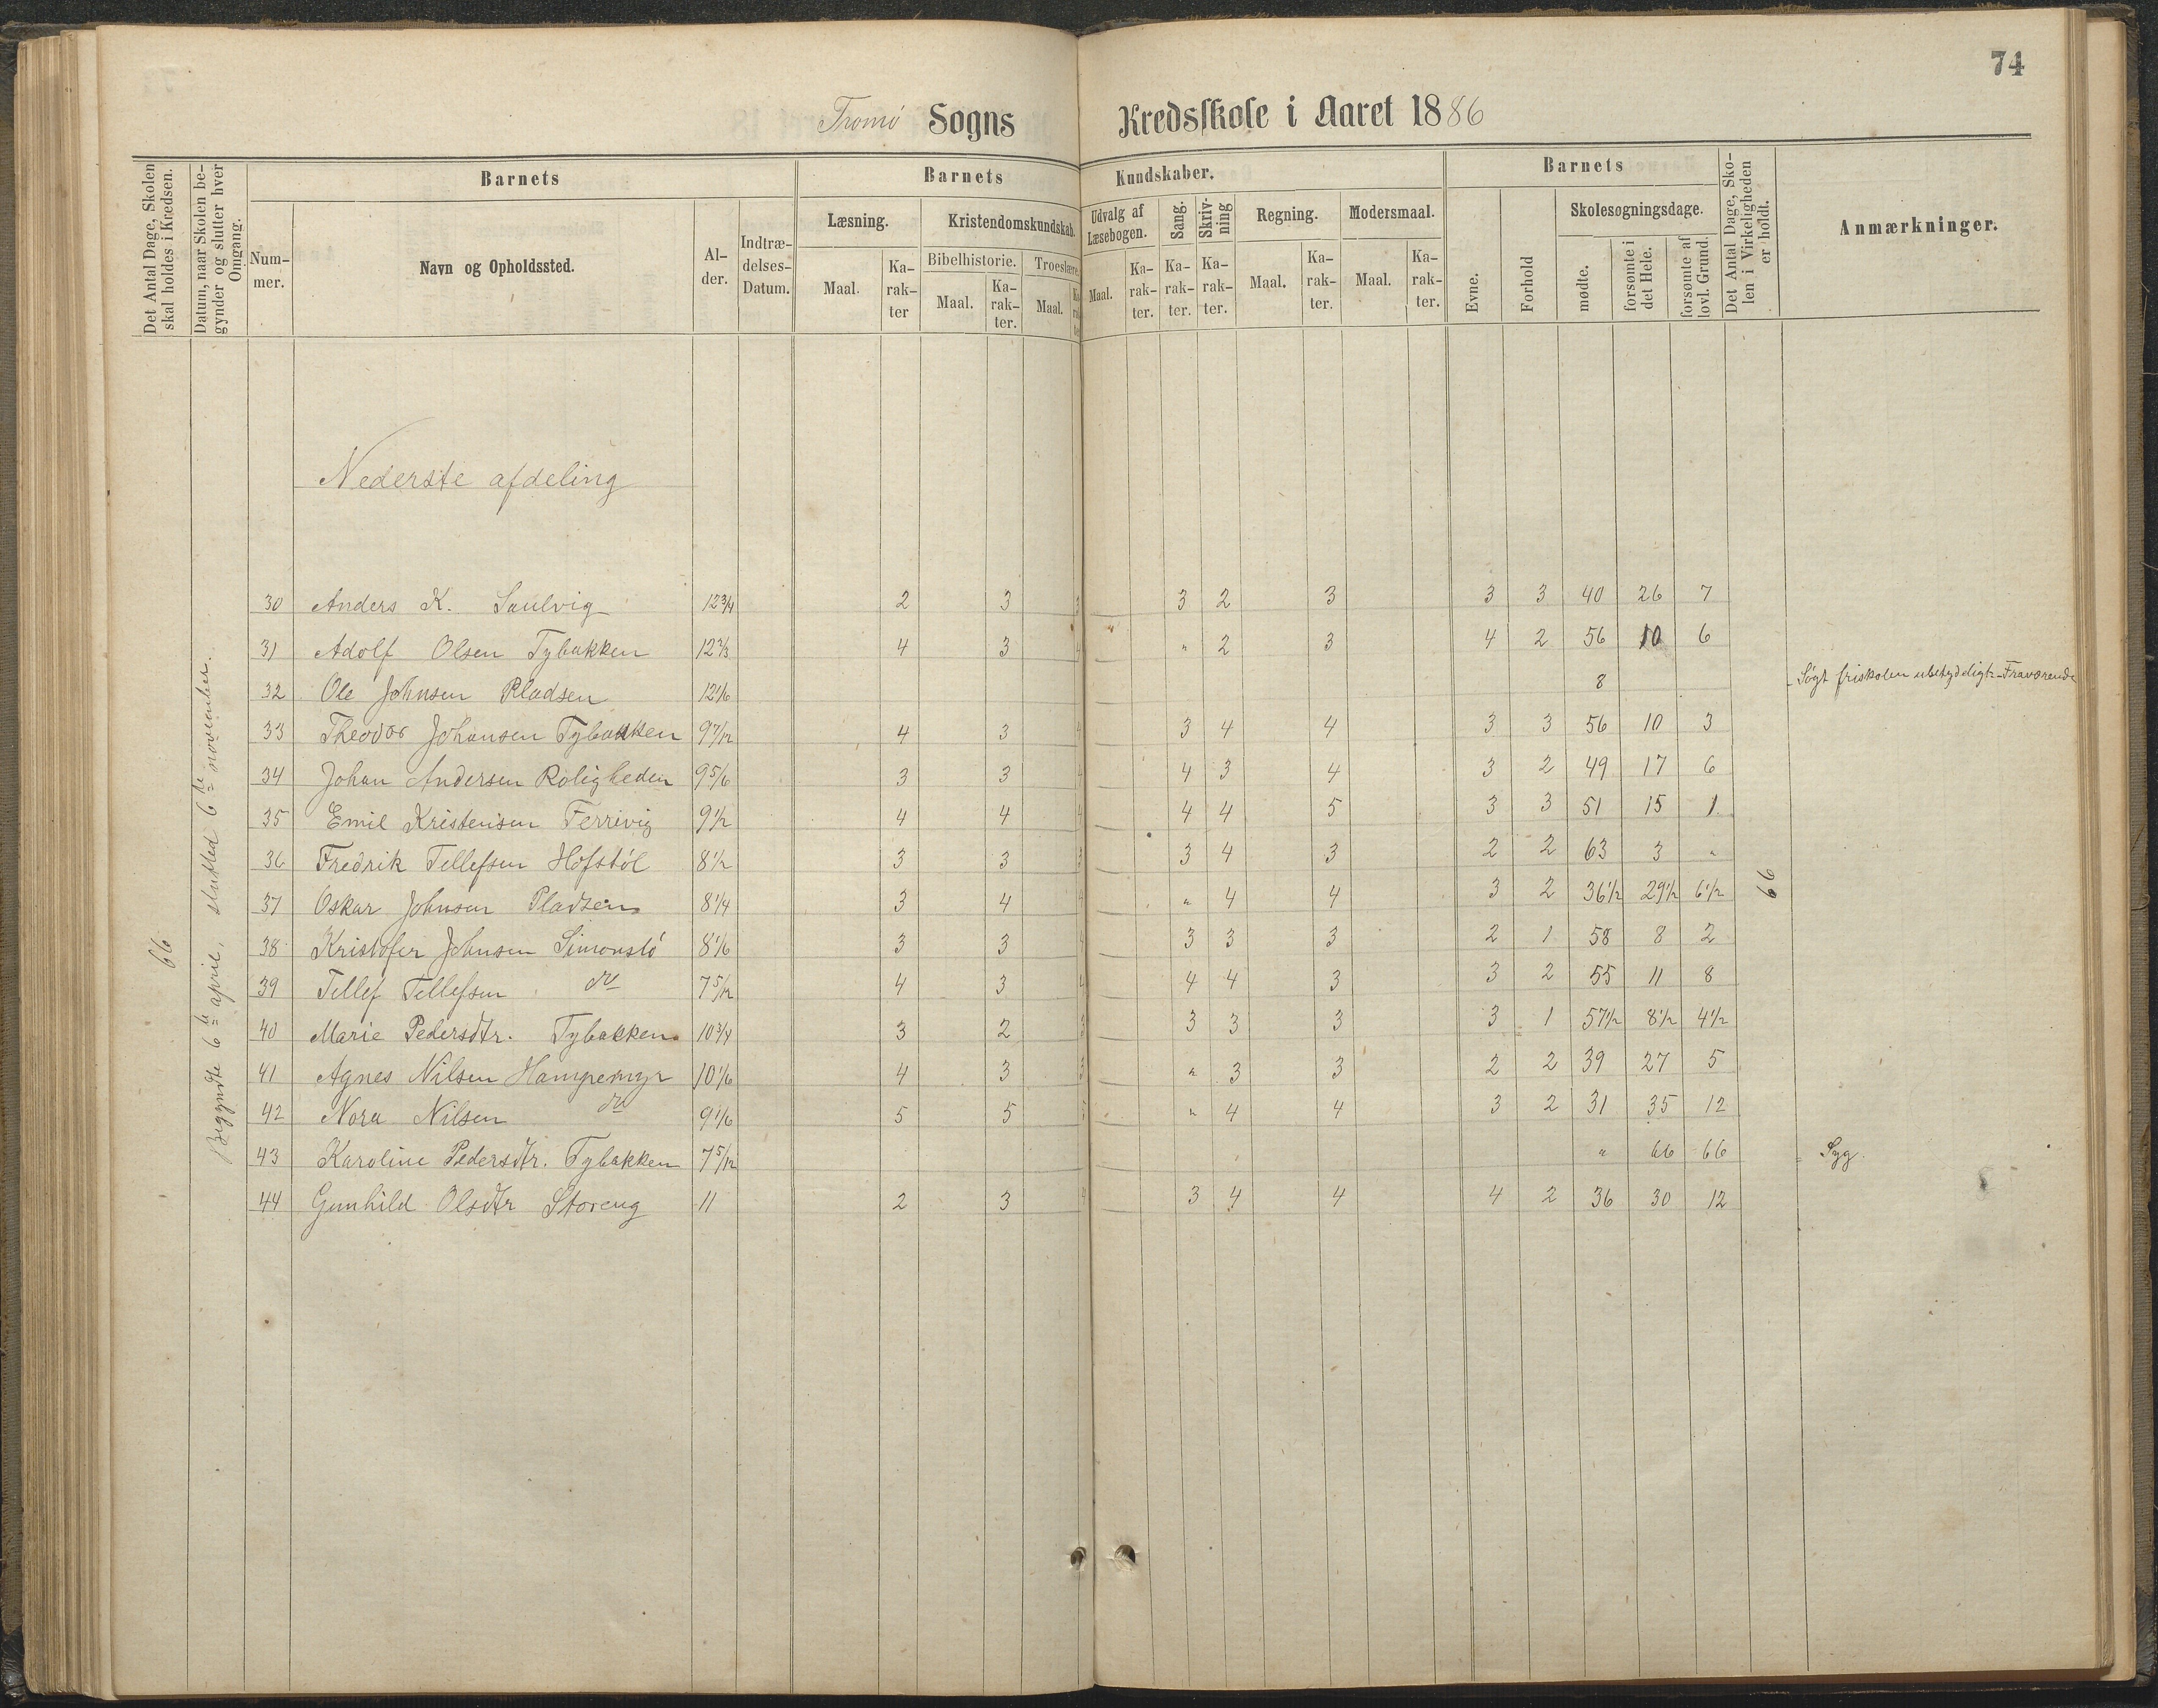 74
Tromø Sogns Kredsskole i Aaret 1886
Det Antal Dage, Skolen skal holdes i Kredsen.
Datum, naar Skolen begynder og slutter hver Omgang.
Barnets
Num-mer.
Navn og Opholdssted.
Al-der.
Indtræ-delses-Datum.
Barnets Kundskaber.
Læsning.
Maal.
Ka-rak-ter
Kristendomskundskab.
Bibelhistorie.
Maal.
Ka-rak-ter.
Troeslære.
Maal.
Udvalg af Læsebogen.
Maal.
Ka-rak-ter.
Sang.
Ka-rak-ter.
Skriv-ning
Ka-rak-ter.
Regning.
Maal.
Ka-rak-ter.
Modersmaal.
Maal.
Ka-rak-ter.
Barnets
Evne.
Forhold
Skolesøgningsdage.
mødte.
forsømte i det Hele.
forsømte af lovl. Grund.
Det Antal Dage, Sko-len i Virkeligheden er holdt.
Anmærkninger.
Nederste afdeling
66
Begyndte 6te april, slutted 6te november.
30 Anders K. Saulvig 12 3/4 2 3 3 3 2 3 3 3 40 26 7
31 Adolf Olsen Tybakken 12 2/3 4 3 4 " 2 3 4 2 56 10 6
32 Ole Johnsen Pladsen 12 1/6 8 Søgt friskolen ubetydeligt - Fraværende
33 Theodor Johansen Tybakken 9 7/12 4 3 4 3 4 4 3 3 56 10 3
34 Johan Andersen Roligheden 9 5/6 3 3 4 4 3 4 3 2 49 17 6
35 Emil Kristensen Ferrivig 9 1/2 4 4 4 4 4 5 3 3 51 15 1
36 Fredrik Tellefsen Hofstøl 8 1/2 3 3 3 3 4 3 2 2 63 3 "
37 Oskar Johnsen Pladsen 8 1/4 3 4 4 " 4 4 3 2 36 1/2 29 1/2 6 1/2
66
38 Kristofer Johnsen Simonstø 8 1/6 3 3 4 3 3 3 2 1 58 8 2
39 Tellef Tellefsen do 7 5/12 4 3 4 4 4 3 3 2 55 11 8
40 Marie Pedersdtr. Tybakken 10 3/4 3 2 3 3 3 3 3 1 57 1/2 8 1/2 4 1/2
41 Agnes Nilsen Hampemyr 10 1/6 4 3 3 " 3 3 2 2 39 27 5
42 Nora Nilsen do 9 1/6 5 5 5 " 4 4 3 2 31 35 12
43 Karoline Pedersdtr. Tybakken 7 5/12 " 66 66 Syg.
44 Gunhild Olsdtr Storeng 11 2 3 4 3 4 4 4 2 36 30 12